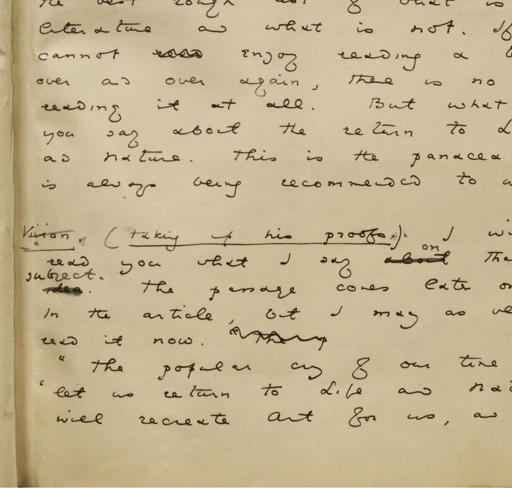 the best rough test of what is
literature and what is not. If
cannot enjoy reading a
over and over again, there is no
reading it at all. But what
you say about the return to L
and Nature. This is the panacea
is always being recommended to u
Vivian. (taking up his proofs). I wi
read you what I say about on tha
subject.
idea. The passage comes later on
in the article, but I may as we
read it now. They
"The popular cry of our time
'let us return to Life and Nat
will recreate Art for us, and